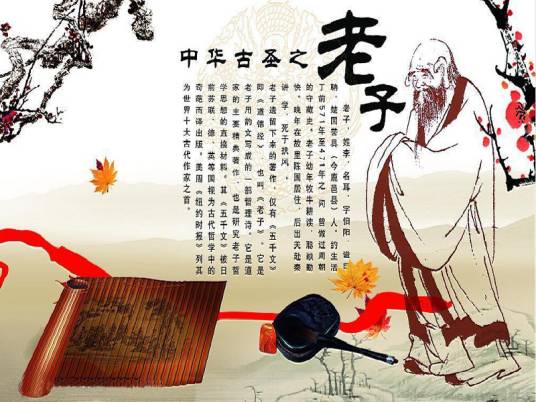 中华古圣之老子
老子，姓李，名耳，字伯阳，谥曰
聃，楚国苦县（今鹿邑县）人。约生活
于前571年至471年之间。曾做过周朝
的守藏史。老子幼年牧牛耕读，聪颖勤
快。晚年在故里陈国居住，后出关赴秦
讲学，死于扶风。
老子遗留下来的著作，仅有《五千文》
即《道德经》，也叫《老子》。它是
老子用韵文写成的一部哲理诗。它是道
家的主要精典著作，也是研究老子哲
学思想的直接材料。其《五千文》被日
前苏联、德、英等国视为古代哲学中的
奇葩而译出版，美国《纽约时报》列其
为世界十大古代作家之首。